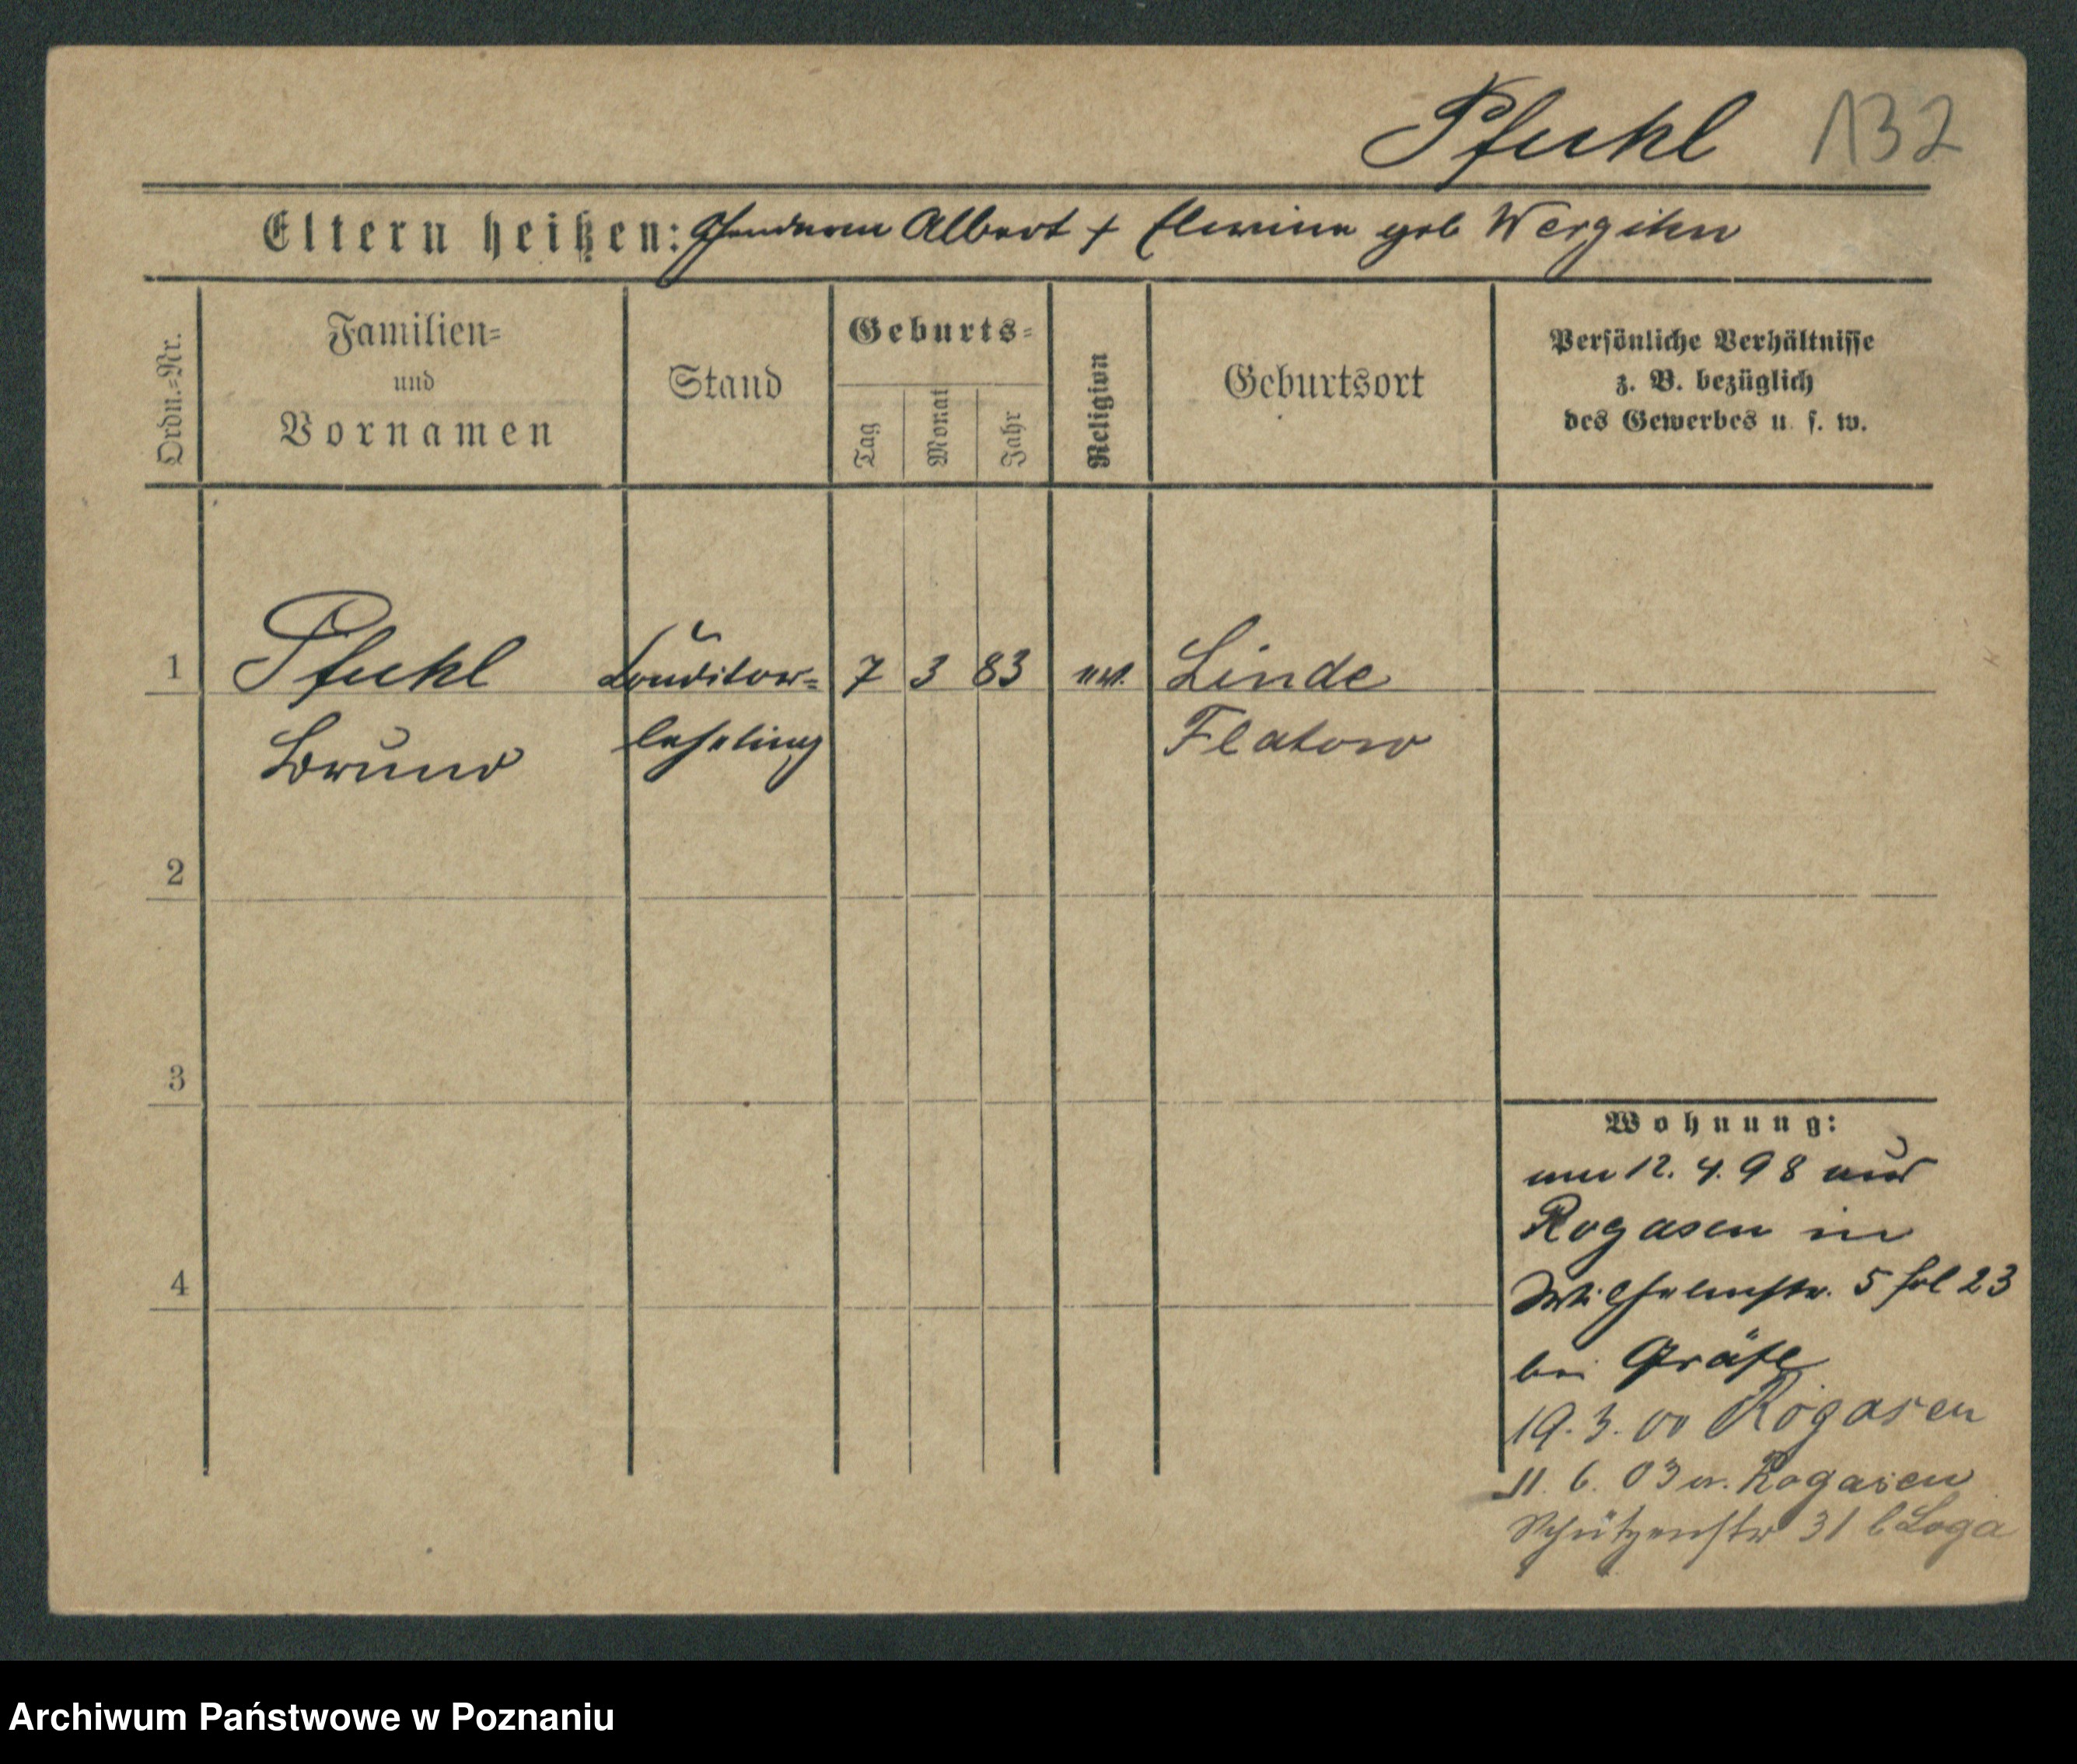 Pfuhl 132
Eltern heißen: Albert + Elwine geb Wergihn
Ordn.-Nr.
Familien-
und
Vornamen
Stand
Geburts-
Tag
Monat
Jahr
Religion
Geburtsort
Persönliche Verhältnisse
z. B. bezüglich
des Gewerbes u. s. w.
1 Pfuhl Conditor- 7 3 83 ev. Linde
Bruno lehrling Flatow
2
3
4
Wohnung:
am 12. 4. 98 aus
Rogasen in
Wilhelmstr. 5 fol 23
bei Gräfe
19. 3. 00 Rogasen
11. 6. 03 v. Rogasen
Schützenstr 31 b Loga
Archiwum Państwowe w Poznaniu